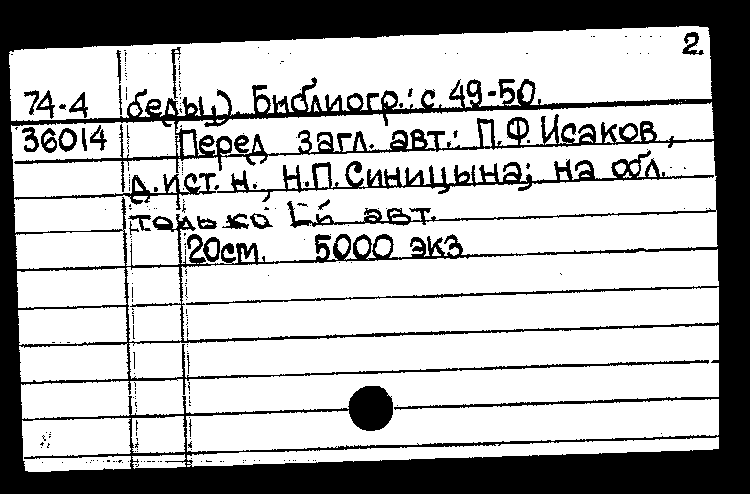 2.
74-4 беды,). Библиогр.: с. 49-50.
36014 Перед загл. авт.: П.Ф. Исаков,
д. ист. н., Н.П. Синицына; на обл.
только авт.
20см. 5000 экз.